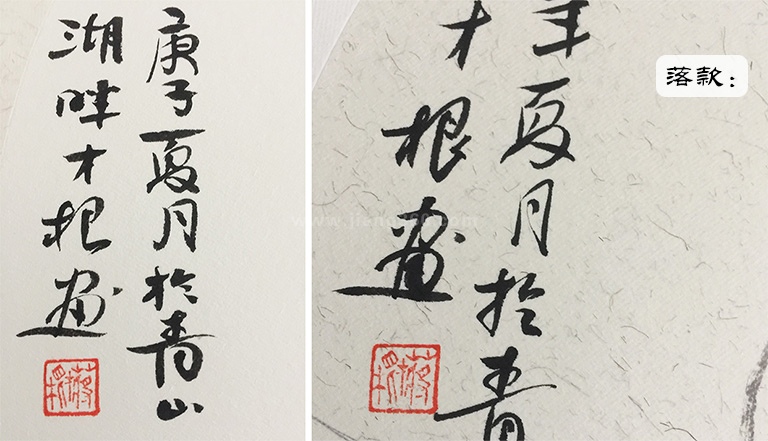 庚子夏月於青山
湖畔才根画
落款：
年夏月於青
才根画